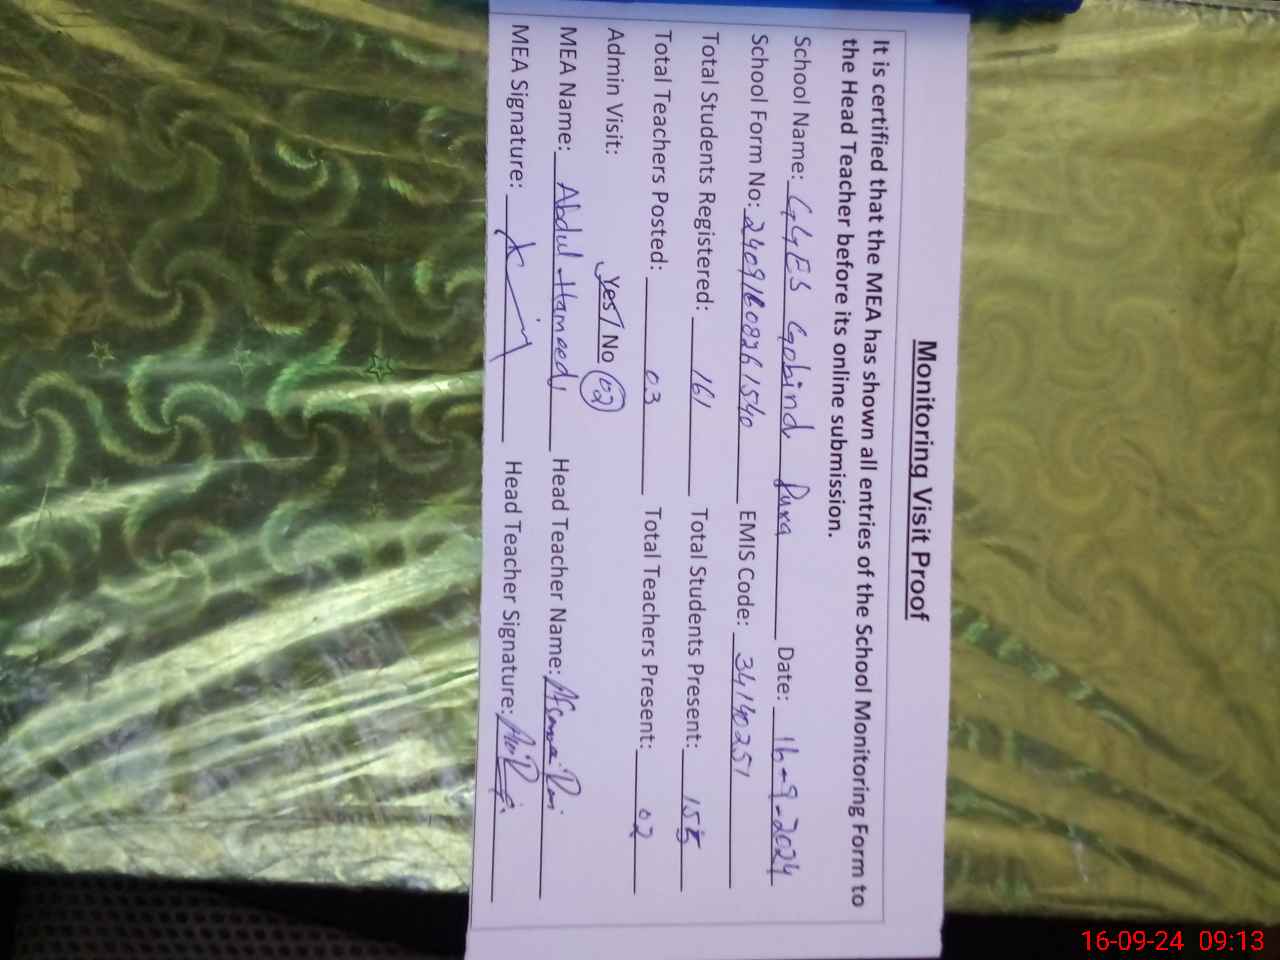 Monitoring Visit Proof
It is certified that the MEA has shown all entries of the School Monitoring Form to
the Head Teacher before its online submission.
School Name: GGES Gobind Pura Date: 16-9-2024
School Form No: EMIS Code: 34140251
Total Students Registered: 161 Total Students Present: 155
Total Teachers Posted: 03 Total Teachers Present: 02
Admin Visit: Yes / No 02
MEA Name: Abdul Hameed Head Teacher Name:
MEA Signature: Head Teacher Signature:
16-09-24 09:13